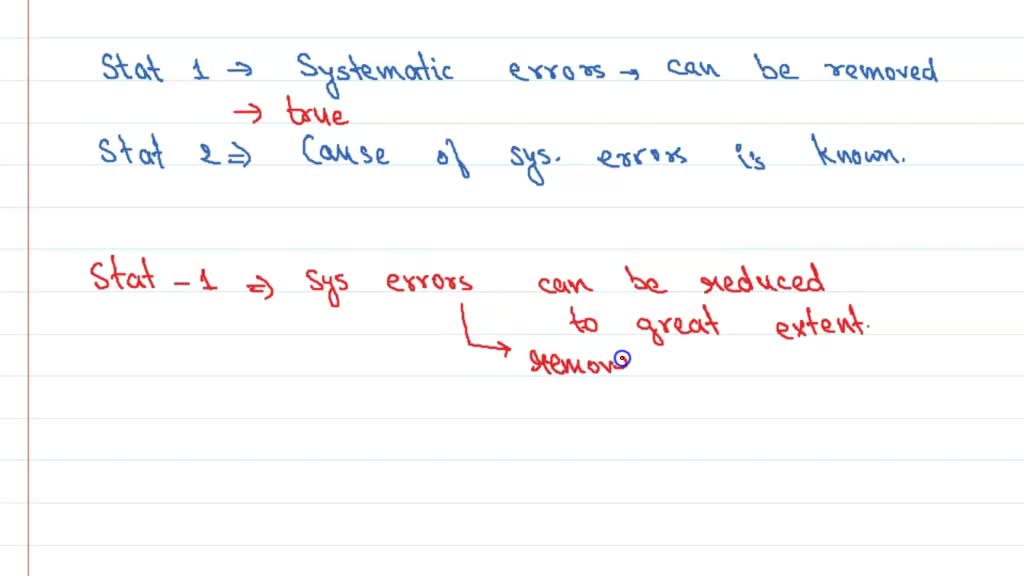 Stat 1 → Systematic errors → can be removed
→ true
Stat 2 ⇒ Cause of sys. errors is known.
Stat - 1 ⇒ sys errors can be reduced
to great extent.
→ remov